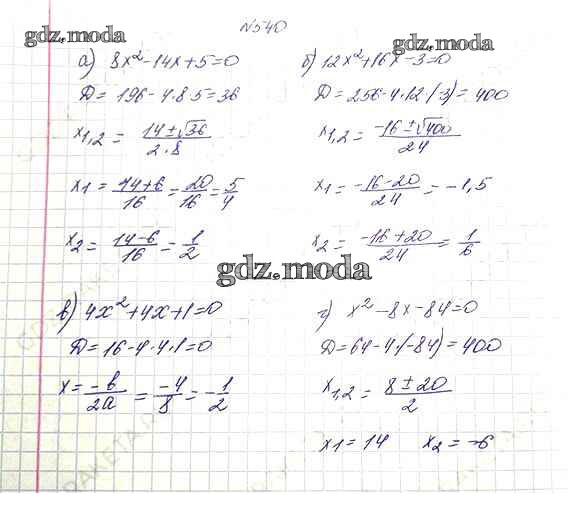 №540
gdz.moda
gdz.moda
а) 8x²-14x+5=0
Д=196-4·8·5=36
x1,2 = (14±√36)/(2·8)
x1 = (14+6)/16 = 20/16 = 5/4
x2 = (14-6)/16 = 1/2
б) 12x²+16x-3=0
Д=256-4·12·(-3)=400
x1,2 = (-16±√400)/24
x1 = (-16-20)/24 = -1,5
x2 = (-16+20)/24 = 1/6
gdz.moda
в) 4x²+4x+1=0
Д=16-4·4·1=0
x = -b/2a = -4/8 = -1/2
г) x²-8x-84=0
Д=64-4·(-84)=400
x1,2 = (8±20)/2
x1=14 x2=-6
gdz.moda
gdz.moda